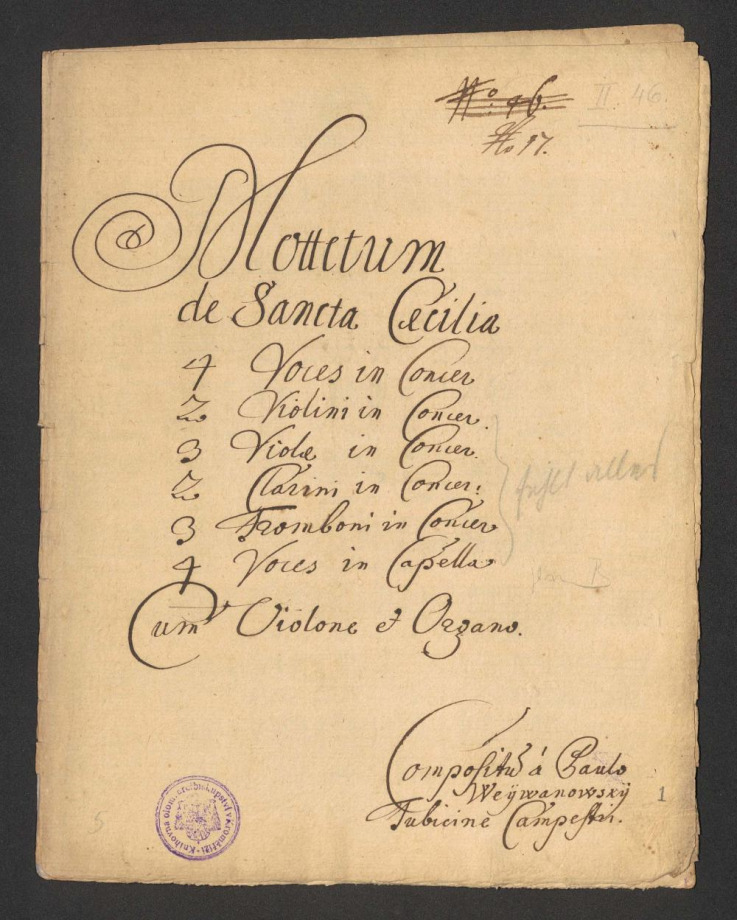 No. 46.
II. 46.
No 47.
Mottetum
de Sancta Cæcilia
4 Voces in Concer
2 Violini in Concer.
3 Violæ in Concer.
2 Clarini in Concer:
3 Tromboni in Concer
fehlt alles
4 Voces in Capella
Cum Violone et Organo.
Compositu᷉ á Paulo
Weÿwanowskÿ
1
Tubicine Campestri.
5
Knihovna olom. arcibiskupství v Kroměříži